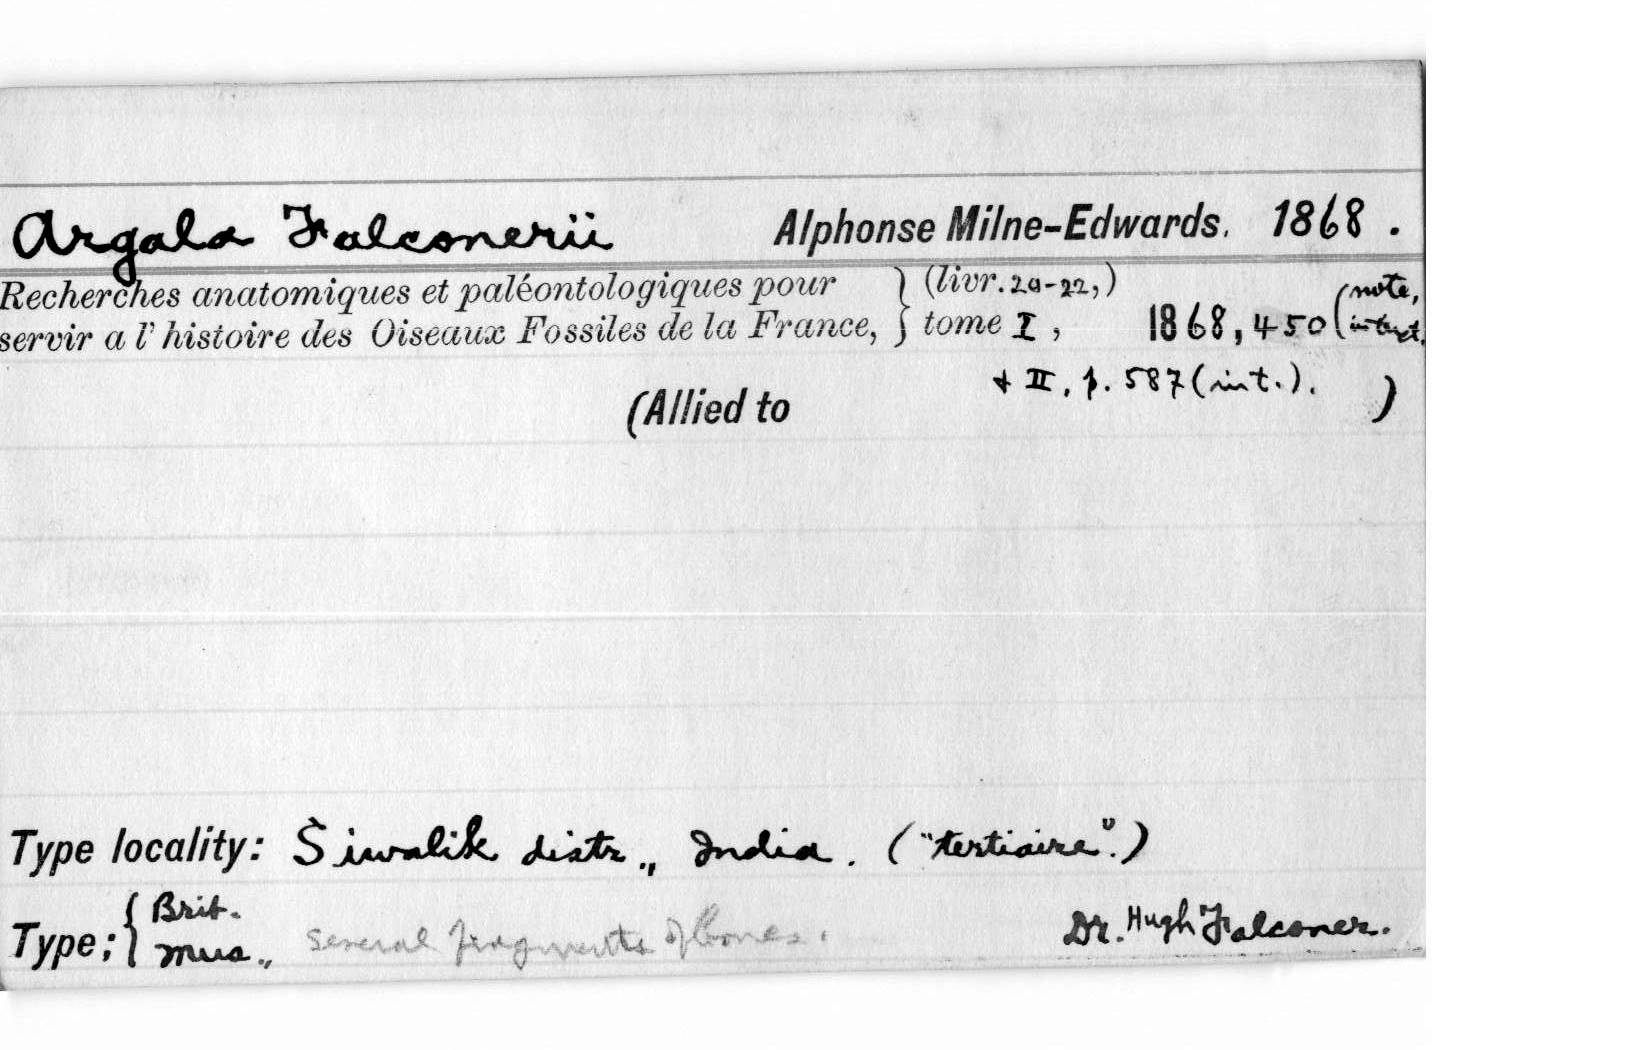 Argala Falconerii Alphonse Milne-Edwards. 1868.
Recherches anatomiques et paléontologiques pour } (livr. 20-22,) (note,
servir a l' histoire des Oiseaux Fossiles de la France, } tome I, 1868, 450
+ II, p. 587 (int.).
(Allied to )
Type locality: Siwalik distr., India. ("tertiaire".)
Type; { Brit.
Mus., several fragments of bones. Dr. Hugh Falconer.